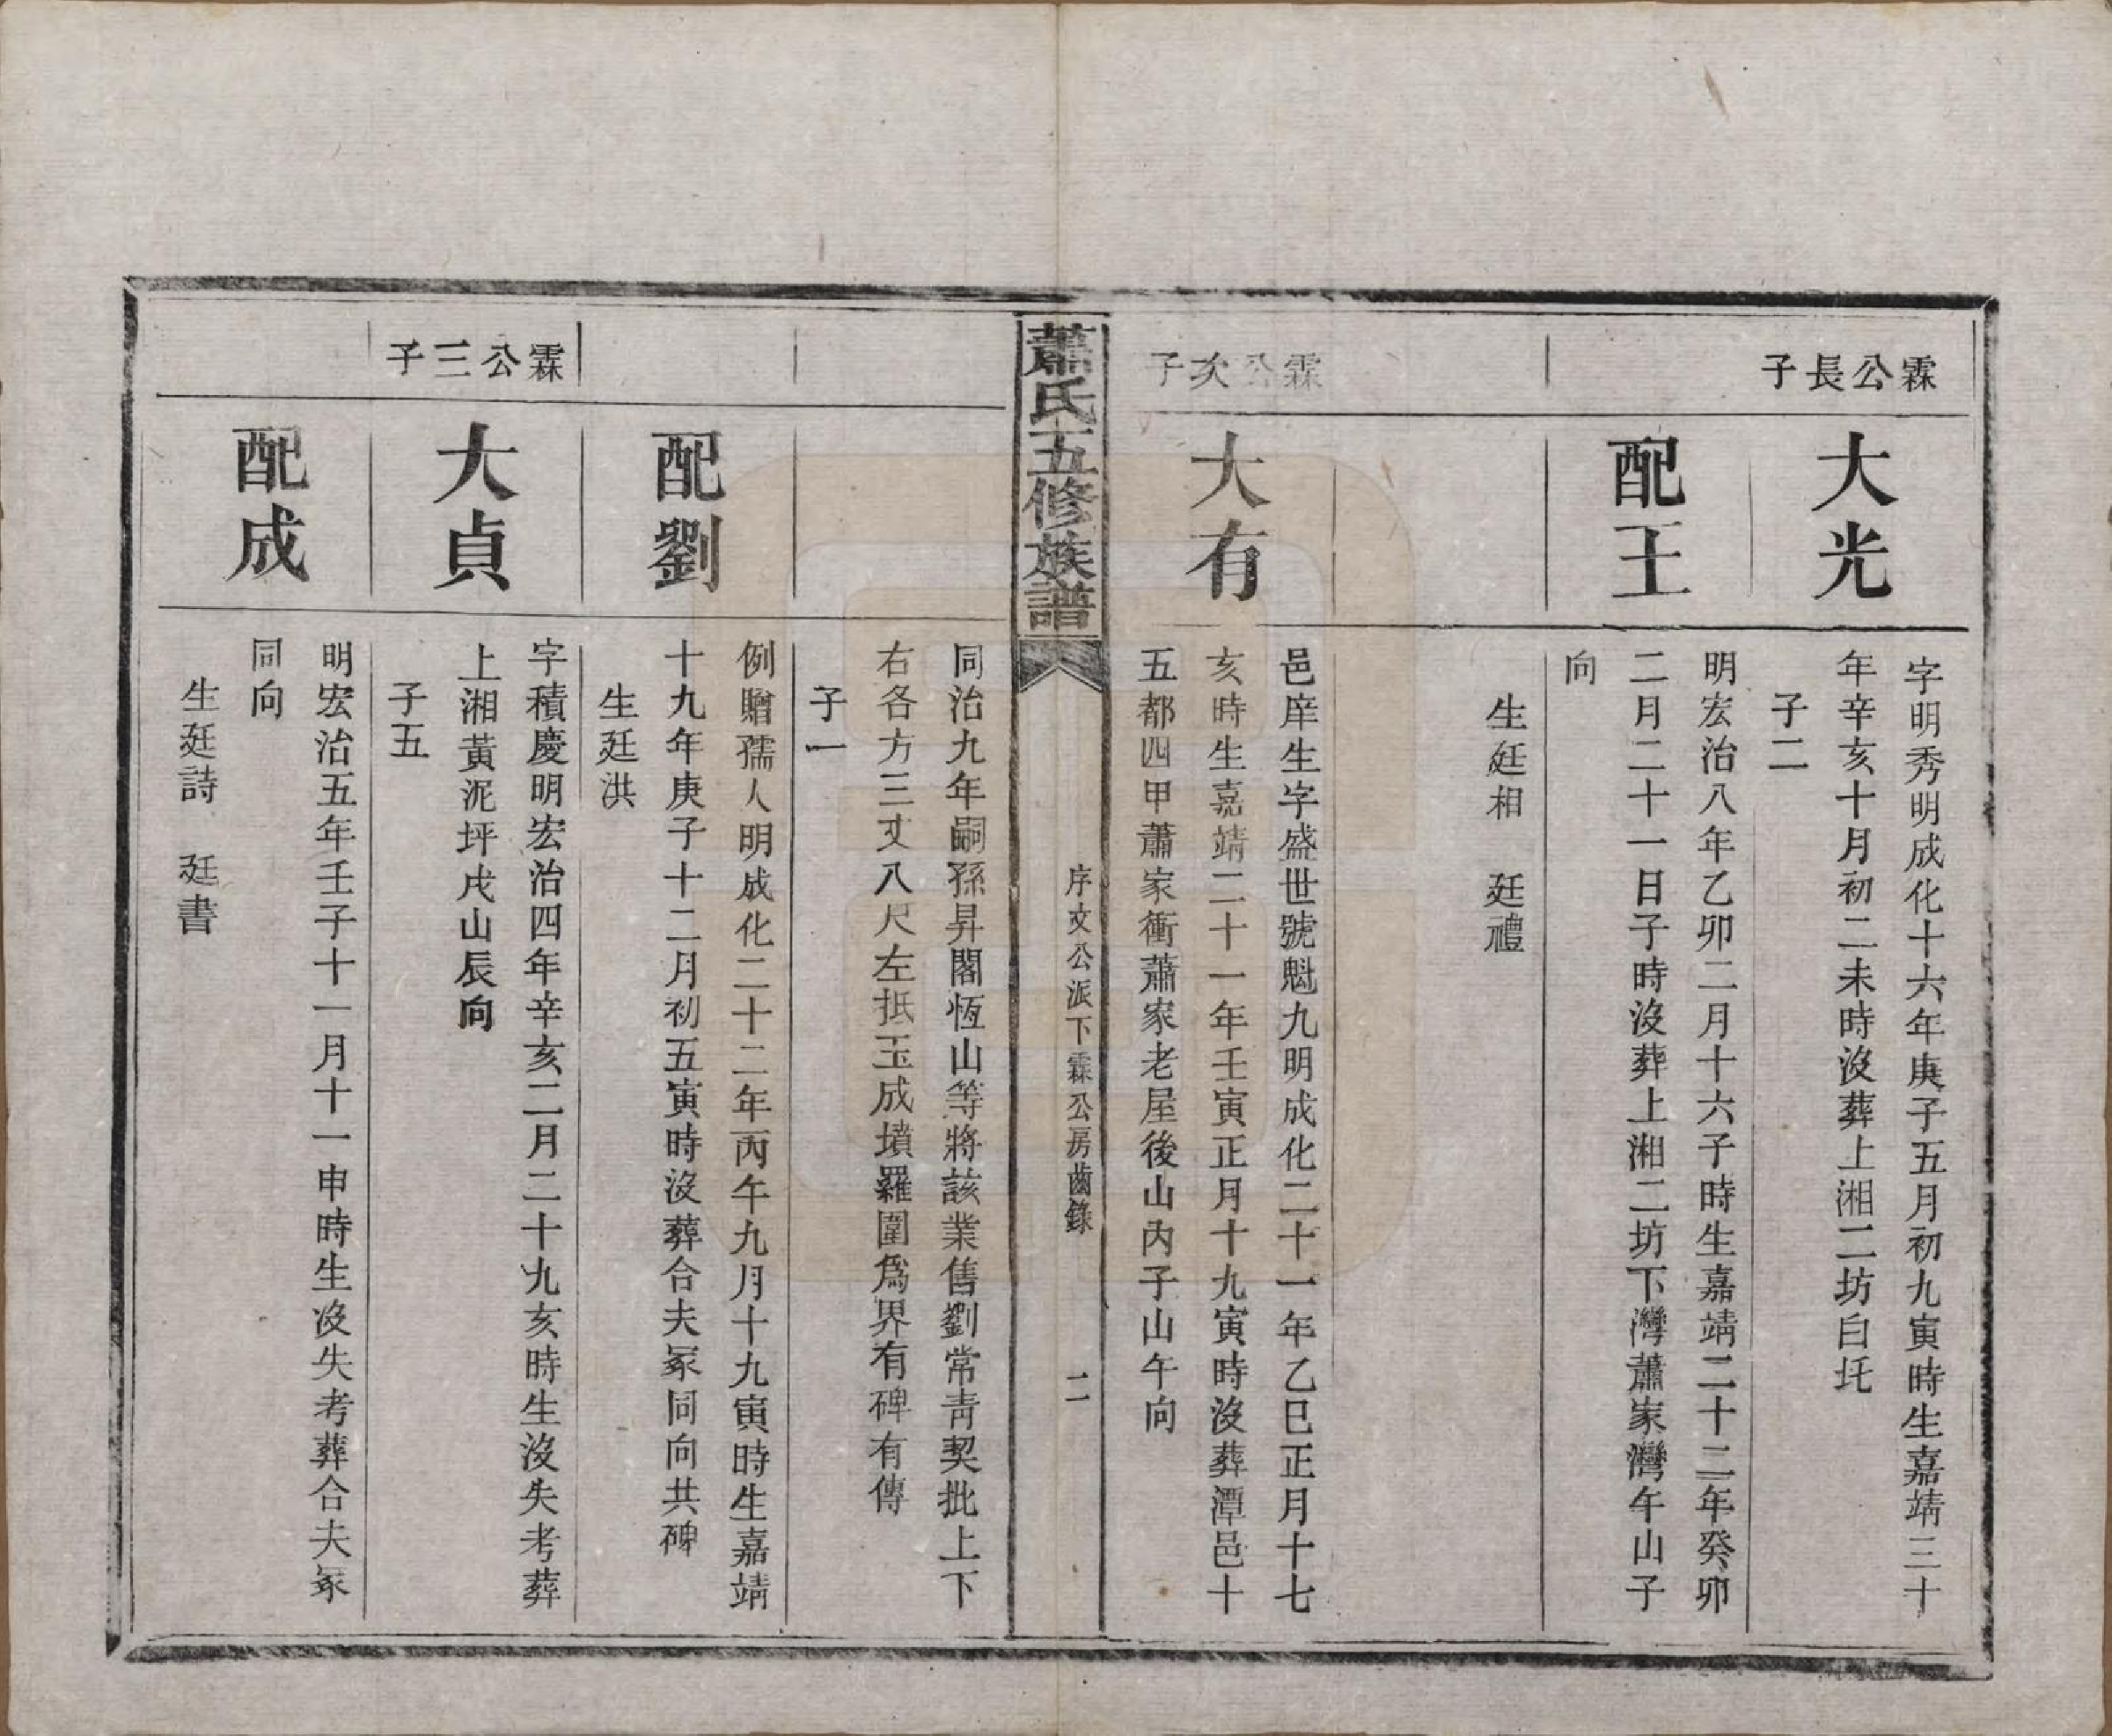 霖公長子
大光
字明秀明成化十六年庚子五月初九寅時生嘉靖三十
年辛亥十月初二未時沒葬上湘二坊白圫
子二
配王
明宏治八年乙卯二月十六子時生嘉靖二十二年癸卯
二月二十一日子時沒葬上湘二坊下灣蕭家灣午山子
向
生廷相　廷禮
霖公次子
大有
邑庠生字盛世號魁九明成化二十一年乙巳正月十七
亥時生嘉靖二十一年壬寅正月十九寅時沒葬潭邑十
五都四甲蕭家衝蕭家老屋後山內子山午向
蕭氏五修族譜
序文公派下霖公房齒錄
二
同治九年嗣孫昇閣恆山等將該業售劉常青契批上下
右各方三丈八尺左抵玉成墳羅圍為界有碑有傳
子一
配劉
例贈孺人明成化二十二年丙午九月十九寅時生嘉靖
十九年庚子十二月初五寅時沒葬合夫冢同向共碑
生廷洪
霖公三子
大貞
字積慶明宏治四年辛亥二月二十九亥時生沒失考葬
上湘黃泥坪戌山辰向
子五
配成
明宏治五年壬子十一月十一申時生沒失考葬合夫冢
同向
生廷詩　廷書